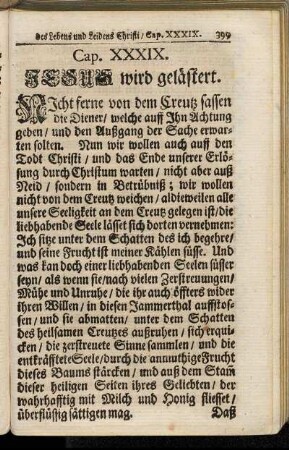 des Lebens und Leidens Christi / Cap. XXXIX. 399
Cap. XXXIX.
JESUS wird gelästert.
NIcht ferne von dem Creutz sassen
die Diener / welche auff Ihn Achtung
geben / und den Außgang der Sache erwar-
ten solten. Nun wir wollen auch auff den
Todt Christi / und das Ende unserer Erlö-
sung durch Christum warten / nicht aber auß
Neid / sondern in Betrübniß; wir wollen
nicht von dem Creutz weichen / aldieweilen alle
unsere Seeligkeit an dem Creutz gelegen ist / die
liebhabende Seele lässet sich dorten vernehmen:
Ich sitze unter dem Schatten des ich begehre /
und seine Frucht ist meiner Kählen süsse. Und
was kan doch einer liebhabenden Seelen süsser
seyn / als wenn sie / nach vielen Zerstreuungen /
Mühe und Unruhe / die ihr auch öffters wider
ihren Willen / in diesen Jammerthal auffstos-
sen / und sie abmatten / unter dem Schatten
des heilsamen Creutzes außruhen / sich erqui-
cken / die zerstreuete Sinne samlen / und die
entkräfftete Seele / durch die annuthige Frucht
dieses Baums stärcken / und auß dem Stam̃
dieser heiligen Seiten ihres Geliebten / der
wahrhafftig mit Milch und Honig fliesset /
überflüssig sättigen mag. Daß